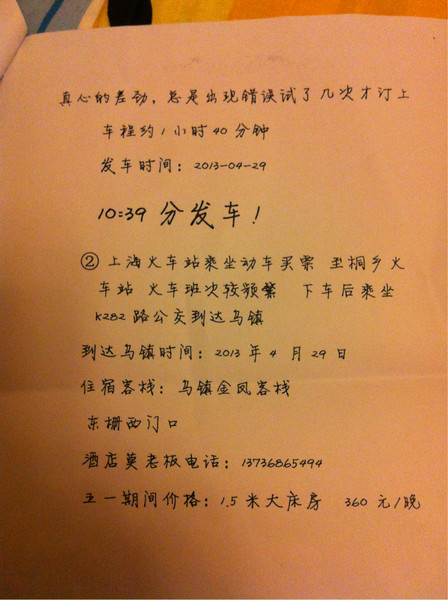 真心的差劲，总是出现错误试了几次才订上
车程约1小时40分钟
发车时间：2013-04-29
10:39 分发车！
② 上海火车站乘坐动车买票 至桐乡火
车站 火车班次较频繁 下车后乘坐
K282 路公交到达乌镇
到达乌镇时间：2013 年 4 月 29 日
住宿客栈：乌镇金凤客栈
东栅西门口
酒店莫老板电话：13736865494
五一期间价格：1.5 米大床房 360 元/晚